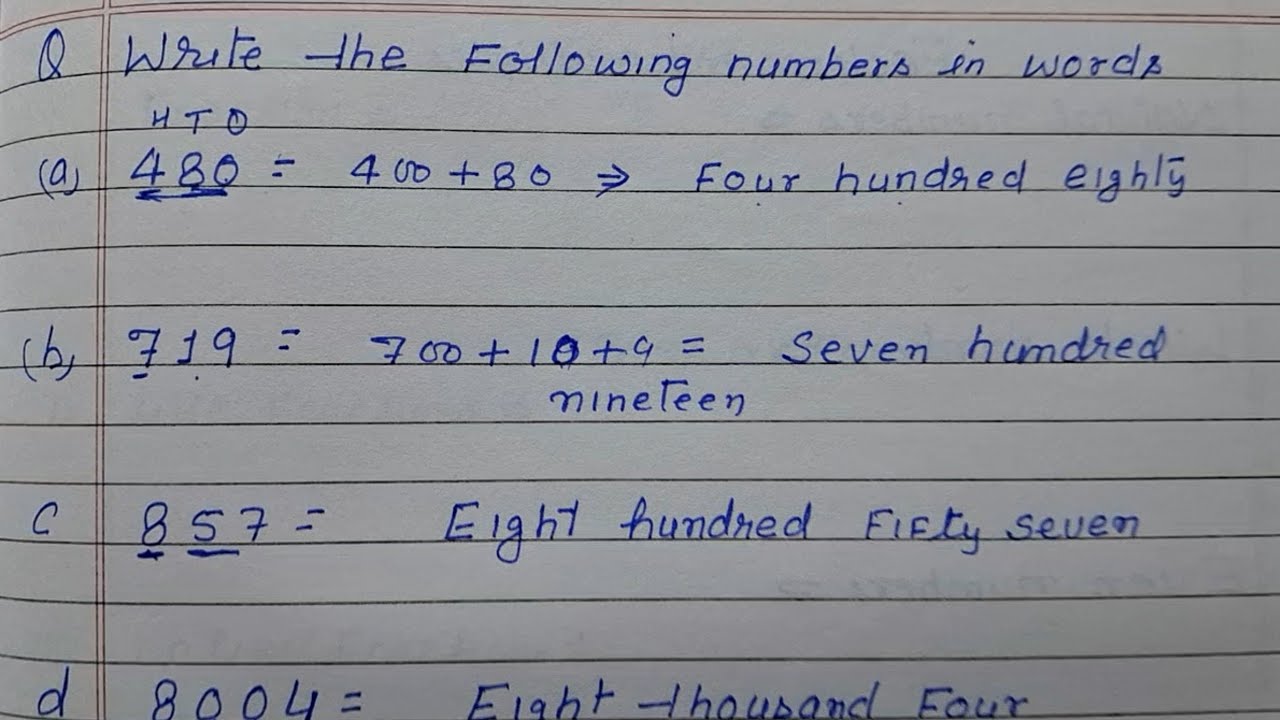 Q Write the Following numbers in words
H T O
(a) 480 = 400 + 80 ⇒ Four hundred eighty
(b) 719 = 700 + 10 + 9 = Seven hundred
nineteen
c 857 = Eight hundred Fifty seven
d 8004 = Eight thousand Four